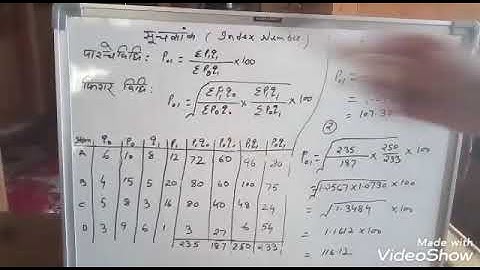 सूचकांक (Index Number)
पाश्चे विधि: P₀₁ = ΣP₁q₁ / ΣP₀q₁ × 100
फिशर विधि: P₀₁ = √(ΣP₁q₀ / ΣP₀q₀ × ΣP₁q₁ / ΣP₀q₁) × 100
q₀ P₀ q₁ P₁ P₁q₀ P₀q₀ P₁q₁ P₀q₁
A 6 10 8 12 72 60 96 80
B 4 15 5 20 80 60 100 75
C 5 8 3 16 80 40 48 24
D 3 9 6 1 3 27 6 54
235 187 250 233
P₀₁ =
= 107.30
②
P₀₁ = √(235/187 × 250/233) × 100
√1.2567 × 1.0730 × 100
= √1.3484 × 100
= 1.1612 × 100
= 116.12
Made with
VideoShow